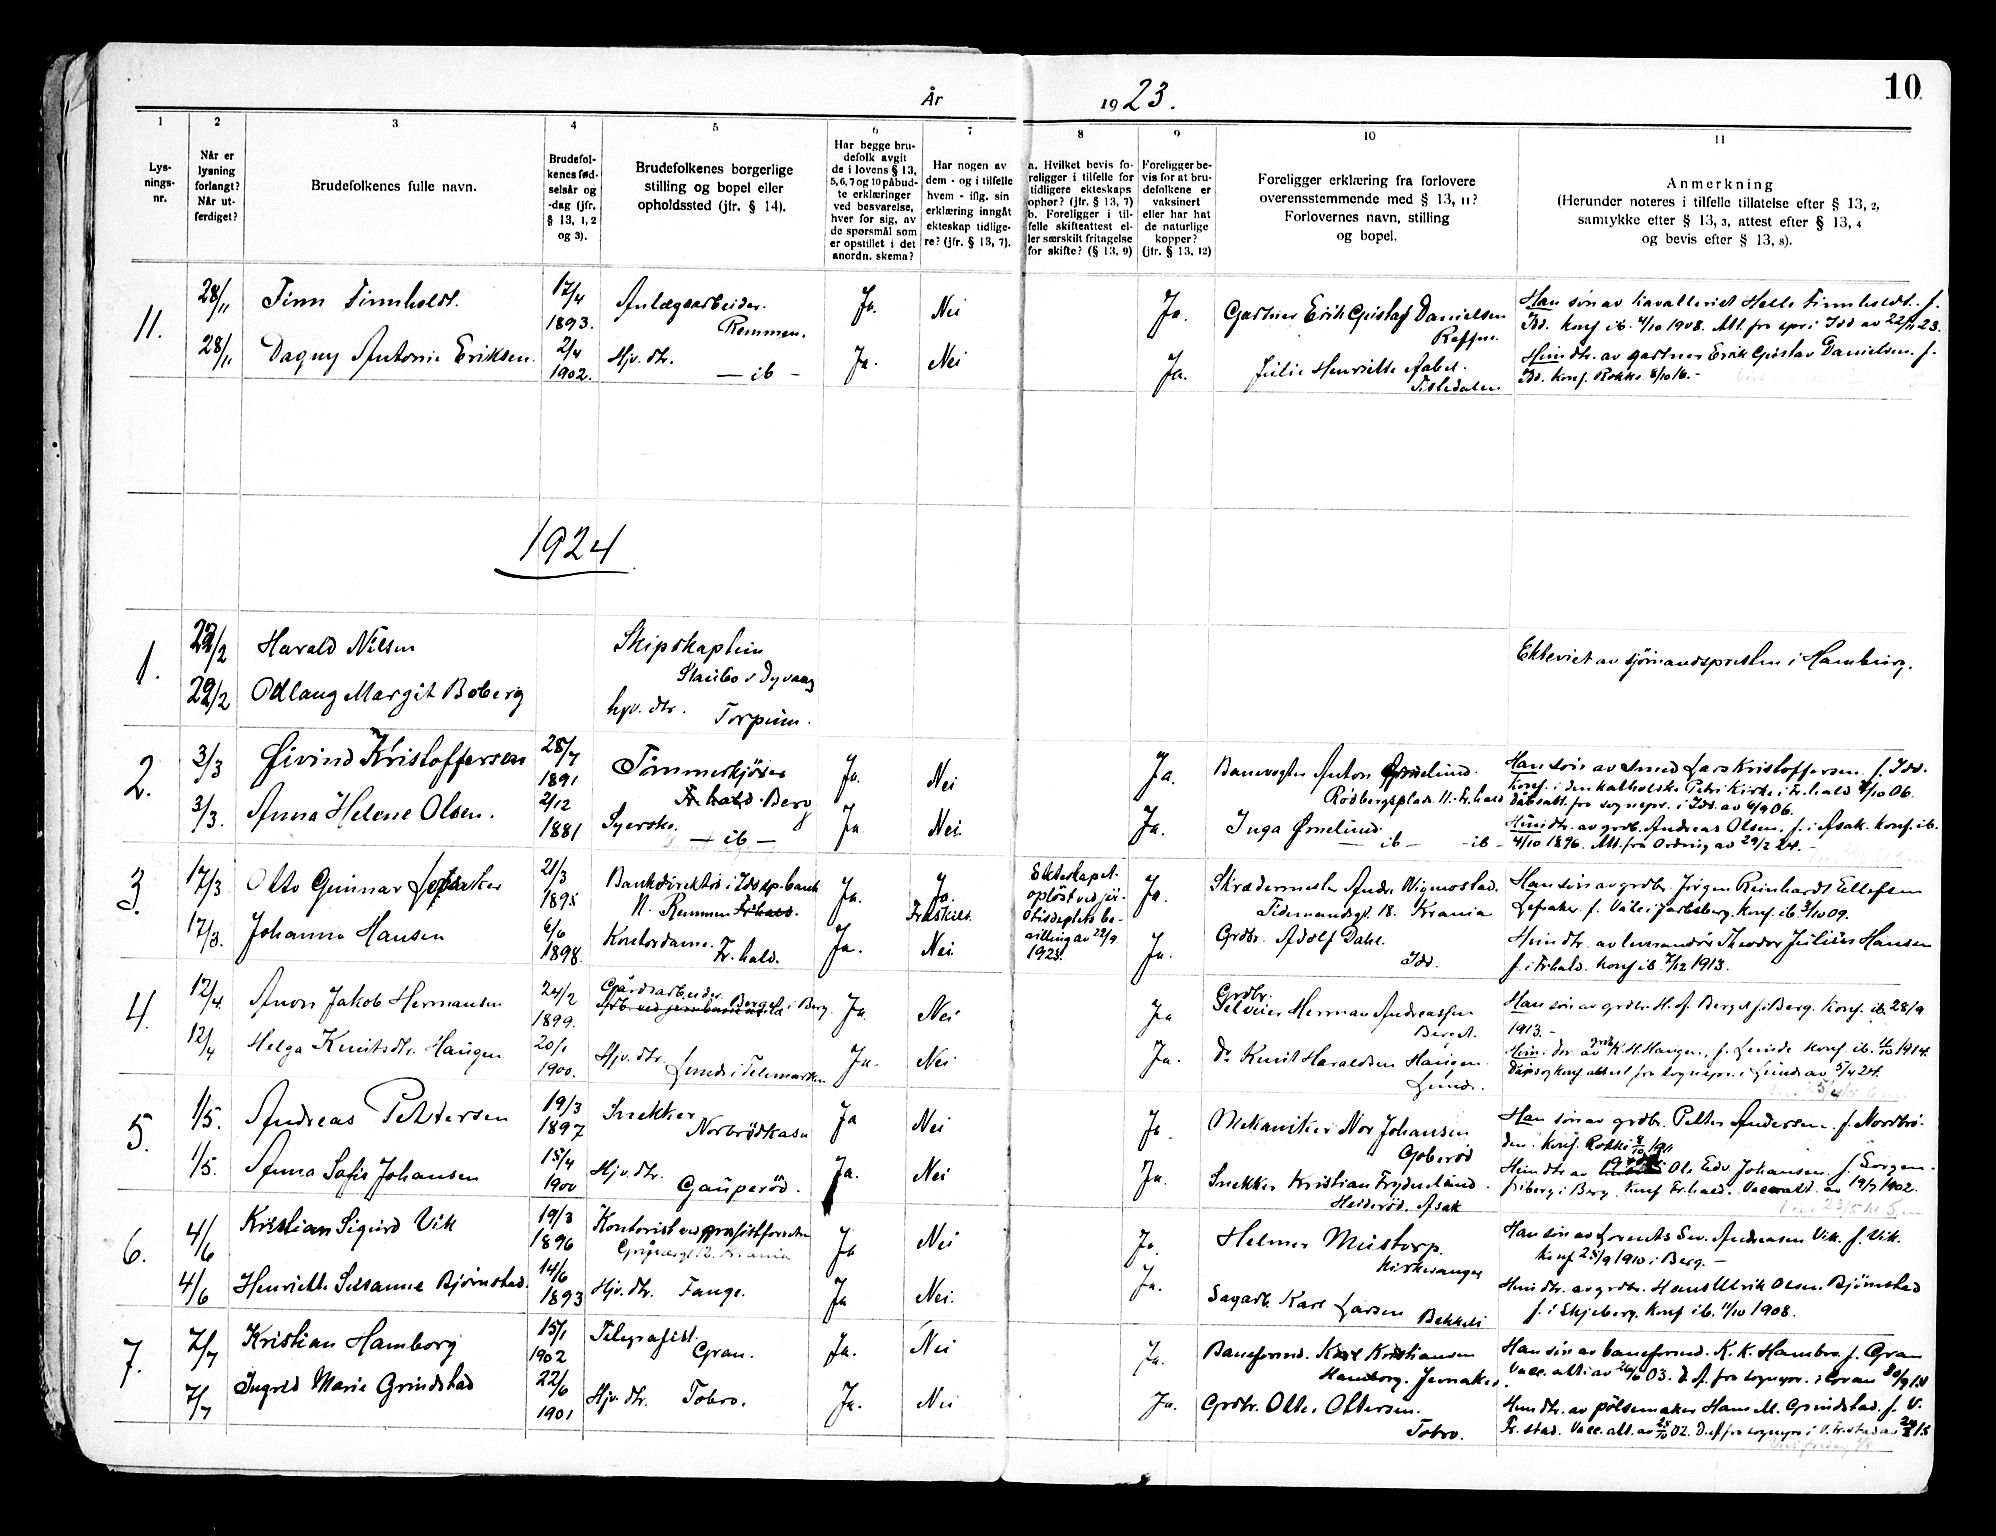 År
1923.
10
1
2
3
4
5
6
7
8
9
10
11
Lys-
nings-
nr.
Når er
lysning
forlangt?
Når ut-
ferdiget?
Brudefolkenes fulle navn.
Brudefol-
kenes fød-
selsår og
-dag (jfr.
§ 13, 1, 2
og 3).
Brudefolkenes borgerlige
stilling og bopel eller
opholdssted (jfr. § 14).
Har begge bru-
defolk avgit
de i lovens § 13,
5, 6, 7 og 10 påbud-
te erklæringer
ved besvarelse,
hver for sig, av
de spørsmål som
er opstillet i det
anordn. skema?
Har nogen av
dem - og i tilfelle
hvem - iflg. sin
erklæring inngåt
ekteskap tidlige-
re? (jfr. § 13, 7).
a. Hvilket bevis fo-
religger i tilfelle for
tidligere ekteskaps
ophør? (jfr. § 13, 7)
b. Foreligger i til-
felle skifteattest el-
ler særskilt fritagelse
for skifte? (§ 13, 9)
Foreligger be-
vis for at bru-
defolkene er
vaksinert
eller har hat
de naturlige
kopper?
(jfr. § 13, 12)
Foreligger erklæring fra forlovere
overensstemmende med § 13, 11?
Forlovernes navn, stilling
og bopel.
Anmerkning
(Herunder noteres i tilfelle tillatelse efter § 13, 2,
samtykke efter § 13, 3, attest efter § 13, 4
og bevis efter § 13, 8).
11.
28/11
Finn Finnholdt.
17/4
1893.
Anlægsarbeider.
Remmen.
Ja.
Nei
Ja.
Gartner Erik Gustaf Danielsen
Han søn av kavallerist Halle Finnholdt. f.
Idd. konf ib. 4/10 1908. Att. fra spr i Idd av 22/11 23.
28/11
Dagny Antonie Eriksen.
2/4
1902.
Hjv. dtr.
— ib —
Ja.
Nei
Ja.
Julie Henriette Aabel.
Tistedalen
Hun dtr. av gartner Erik Gustav Danielsen. f.
Idd. konf. Rokke 8/10 16.-
1924
1.
29/2
Harald Nilsen
Skipskaptein
Staubo v Dyvaag
Ekteviet av sjømandspresten i Hamburg.
29/2
Odlaug Margit Boberg
hjv. dtr.
Torpum.
2.
3/3
Øivind Kristoffersen
28/7
1891
Tømmerkjører
Fr.hald. Berg
Ja.
Nei
Ja.
Banevogter Anton Ørnelund.
Rødbergsplads 11. Fr.hald
Han søn av smed Lars Kristoffersen. f. Idd.
Konf. i den katholske Petri Kirke i Fr.hald 4/10 06.
Dåbsatt. fra sognepr. i Idd. av 6/9 06.
3/3.
Anna Helene Olsen.
2/12
1881
Syerske.
— ib —
Ja
Nei.
Ja.
Inga Ørnelund.
— ib — -ib -
Hun dtr. av grdb. Andreas Olsen, f. i Asak. konf. ib.
4/10 1896. Att. fra Ordning av 29/2 24. -
3.
17/3
Otto Gunnar Lefsaker
21/3
1895
Bankdirektør i Idd sp.bank
N. Remmen Fr.hald.
Ja.
Ja.
Fraskilt.
Ekteskapet
opløst ved ju-
stisdeptets be-
villing av 22/9
1923.
Ja.
Skrædermester Andr. Wigmostad.
Tidemandsgt. 18. Krania
Han søn av grdbr. Jørgen Reinhardt Ellefsen
Lefsaker. f. Våle i Jarlsberg. Konf. ib. 3/10 09.
17/3.
Johanne Hansen
6/6
1898.
Kontordame.
Fr.hald.
Ja.
Nei.
Ja.
Grdbr. Adolf Dahl.
Idd.
Hun dtr. av leverandør Theodor Julius Hansen
f. i Fr.hald. Konf ib. 7/12 1913.
4.
12/4.
Anon Jakob Hermansen
24/2
1899.
Gårdsarbeider
Berget i Berg
Ja.
Nei
Ja
Grdbr.
Selveier Herman Andreassen
Berget.
Han søn av grdbr. H. A. Berget f. i Berg. Konf. ib. 28/9
1913.-
12/4
Helga Knutsdtr. Haugen
20/1
1900.
Hjv. dtr.
Lunde i Telemarken
Ja.
Nei
Ja.
Do Knut Haraldsen Haugen.
Lunde.
Hun. dtr. av grdb K. H. Haugen, f. Lunde Konf. ib. 4/10 1914.
Dåps og konf attest fra sognepr. i Lunde av 5/4 24.
5.
1/5.
Andreas Pettersen
19/3
1897
Snekker
Norbrødkasa
Ja
Nei
Ja
Mekaniker Nor Johansen
Goberød
Han søn av grdbr. Petter Andersen. f. Nordbrø-
den i konf. Rokke 8/10 1911
1/5.
Anna Sofie Johansen
15/4
1900
Hjv. dtr.
Gauperød.
Ja.
Nei
Ja.
Snekker Kristian Frydenlund.
Heiderød. Asak
Hun dtr av Ole Edv. Johansen. f Sorgen-
friberg i Berg. Konf Fr.hald. Vacc. att. av 19/7 1902.
6.
4/6
Kristian Sigurd Vik
19/3
1896
Ja
Nei
Ja.
Helmer Mustorp.
Kirkevanger
Han søn av Lorents Sev. Andreasen Vik. f. Vik.
Konf 25/9 1910 i Berg. —
4/6
Henriette Susanne Bjørnstad.
14/6
1893
Hjv. dtr. Fange.
Ja
Nei.
Ja.
Sagarb. Karl Larsen
Bekkeli
Hun dtr. av grdbr. Hans Ulrik Olsen Bjørnstad
f. i Skjeberg. Konf ib. 11/10 1908.
7.
7/7
Kristian Hamborg
15/1
1902
Telegrafist.
Gran.
Ja.
Nei
Ja.
Baneformd. Karl Kristiansen
Hamborg. Jevnaker.
Han søn av baneformd. K. K. Hambro. f. Gran
Vacc. att. av 26/6 03. D. A. fra sognepr. i Gran 20/9 18
7/7
Ingrid Marie Grindstad
22/6
1901
Hjv. dtr. Tobro.
Ja.
Nei
Ja.
Grdbr. Otto Ottersen.
Tobro.
Hun dtr. av pølsemaker Hans M. Grindstad. f. V.
Fr.stad. Vacc. att. av 28/10 02. D. A fra sognepr i V. Fr.stad av